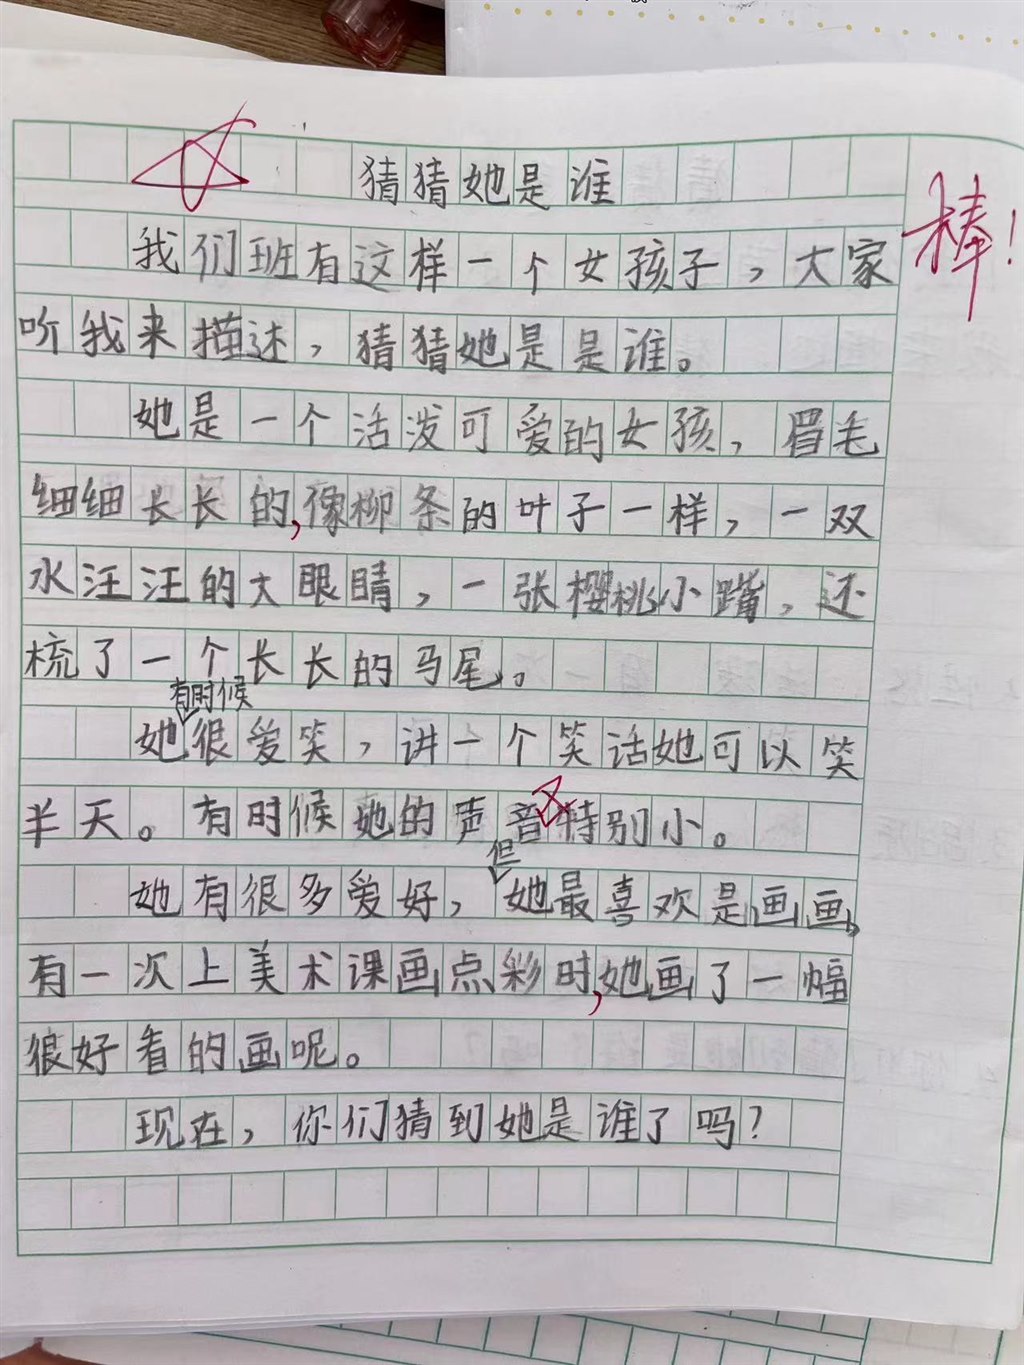 猜猜她是谁
棒!
我们班有这样一个女孩子,大家
听我来描述,猜猜她是是谁。
她是一个活泼可爱的女孩,眉毛
细细长长的,像柳条的叶子一样,一双
水汪汪的大眼睛,一张樱桃小嘴,还
梳了一个长长的马尾。
有时候
她很爱笑,讲一个笑话她可以笑
半天。有时候她的声音又特别小。
但
她有很多爱好,她最喜欢是画画,
有一次上美术课画点彩时,她画了一幅
很好看的画呢。
现在,你们猜到她是谁了吗?